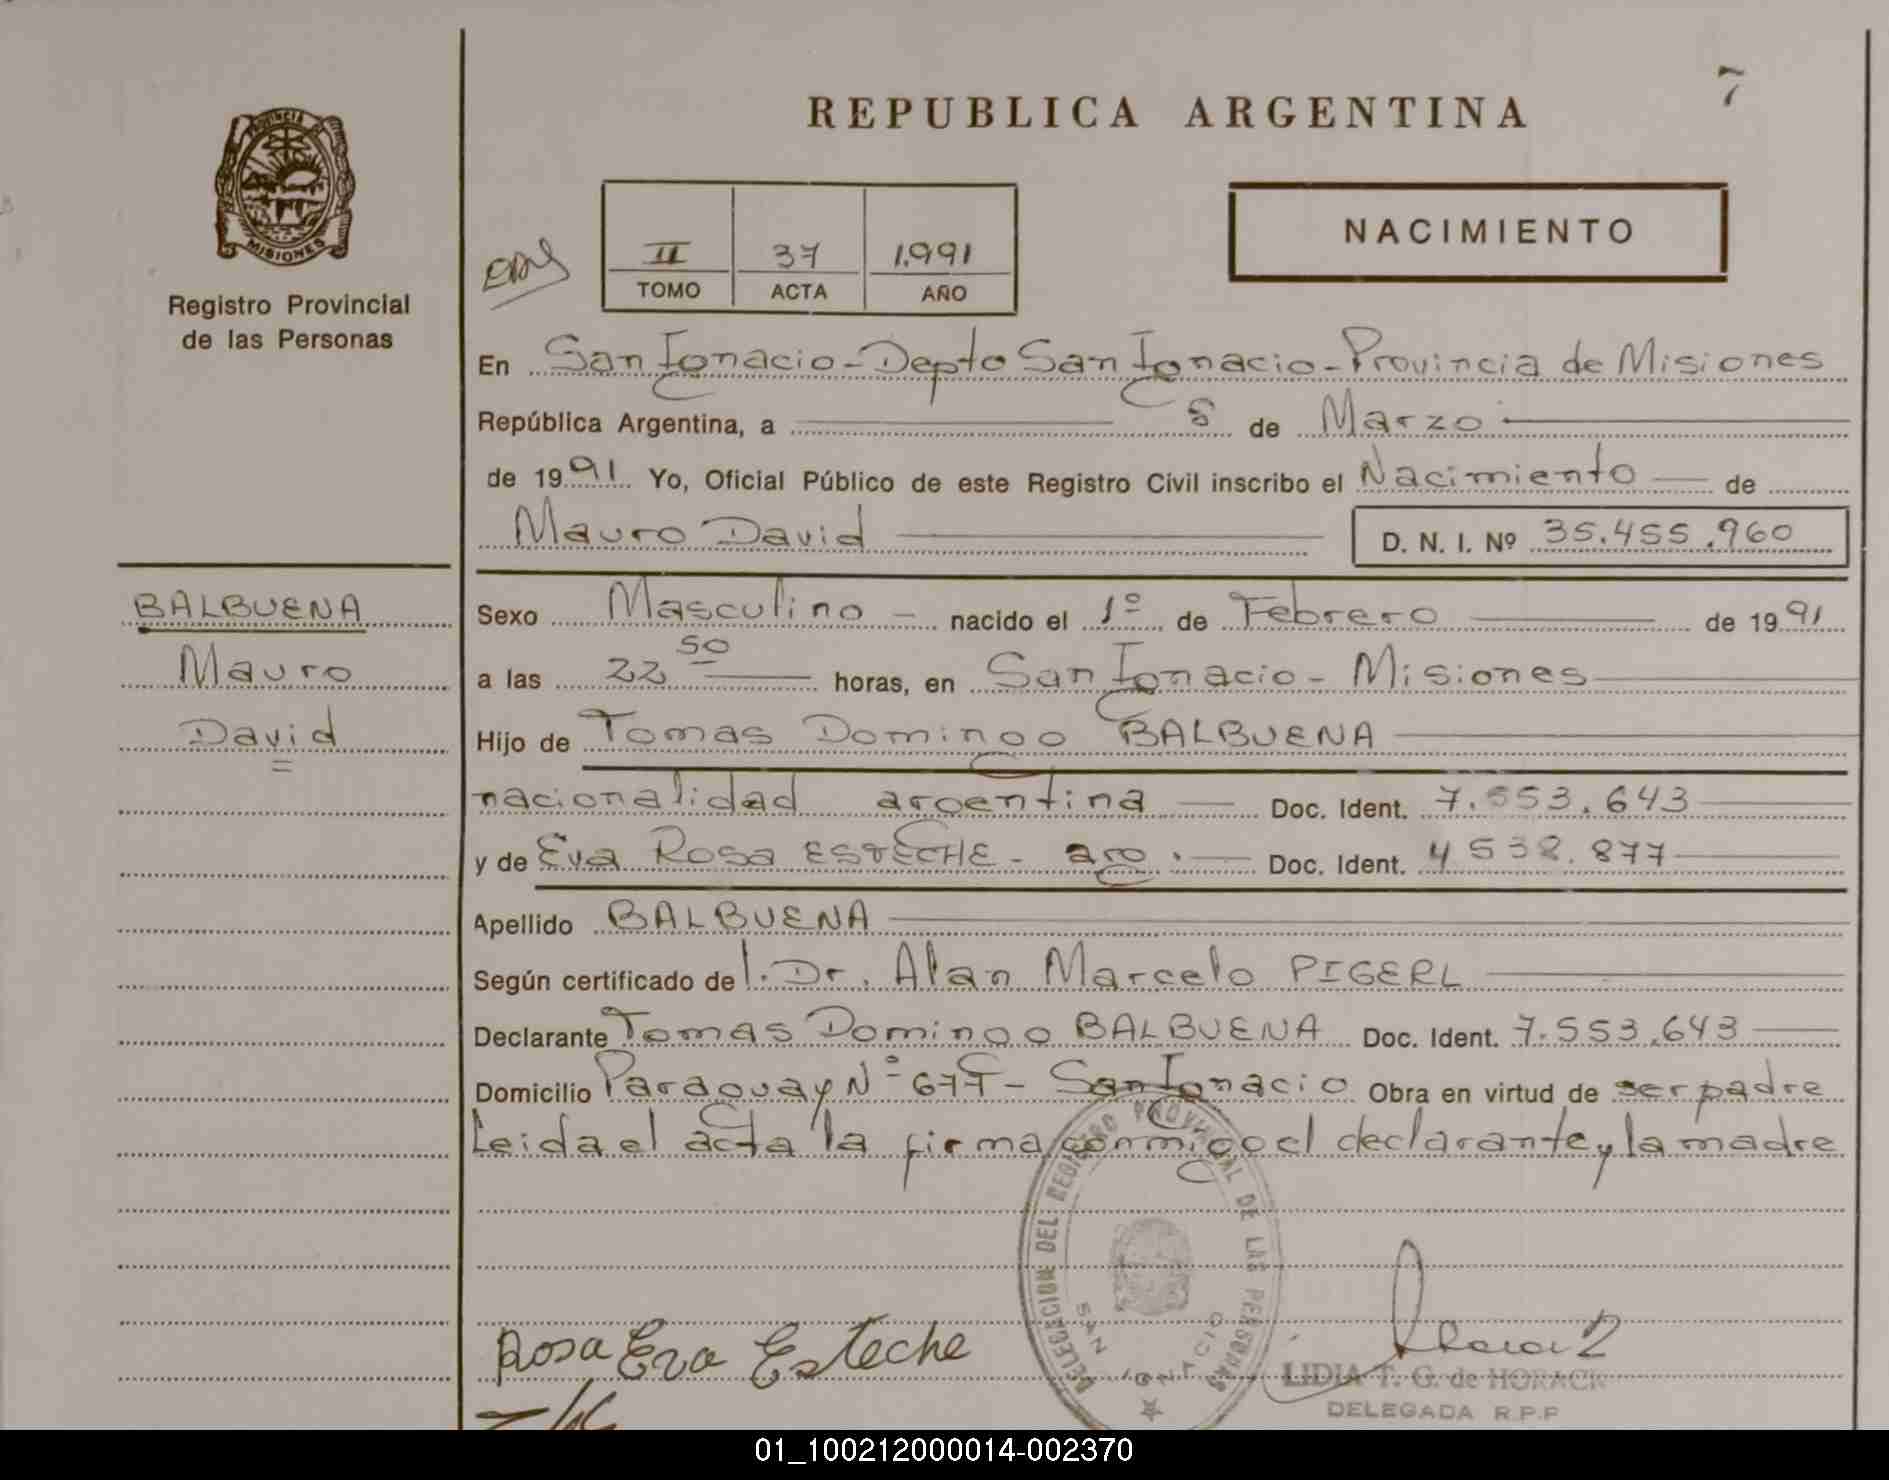 7
REPUBLICA ARGENTINA
PROVINCIA DE
MISIONES
Registro Provincial
de las Personas
NACIMIENTO
II 37 1.991
TOMO ACTA AÑO
En San Ignacio - Depto San Ignacio - Provincia de Misiones
República Argentina, a 8 de Marzo
de 1991. Yo, Oficial Público de este Registro Civil inscribo el Nacimiento de
Mauro David D. N. I. Nº 35.455.960
BALBUENA
Mauro
David
Sexo Masculino - nacido el 1º de Febrero de 1991
a las 22 50 horas, en San Ignacio - Misiones
Hijo de Tomas Domingo BALBUENA
nacionalidad argentina Doc. Ident. 7.553.643
y de Eva Rosa ESTECHE - arg. Doc. Ident. 4 538.877
Apellido BALBUENA
Según certificado del Dr. Alan Marcelo PIGERL
Declarante Tomas Domingo BALBUENA Doc. Ident. 7.553.643
Domicilio Paraguay Nº 677 - San Ignacio Obra en virtud de ser padre
Leida el acta la firma conmigo el declarante y la madre
DELEGACION DEL REGISTRO PROVINCIAL DE LAS PERSONAS
SAN IGNACIO
Rosa Eva Esteche
LIDIA T. G. de HORACK
DELEGADA R.P.P
01_100212000014-002370